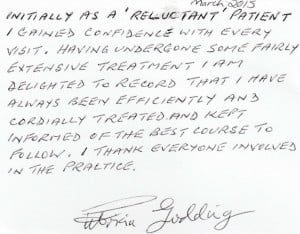 March 2015
INITIALLY AS A 'RELUCTANT' PATIENT
I GAINED CONFIDENCE WITH EVERY
VISIT. HAVING UNDERGONE SOME FAIRLY
EXTENSIVE TREATMENT I AM
DELIGHTED TO RECORD THAT I HAVE
ALWAYS BEEN EFFICIENTLY AND
CORDIALLY TREATED AND KEPT
INFORMED OF THE BEST COURSE TO
FOLLOW. I THANK EVERYONE INVOLVED
IN THE PRACTICE.
Patricia Godding